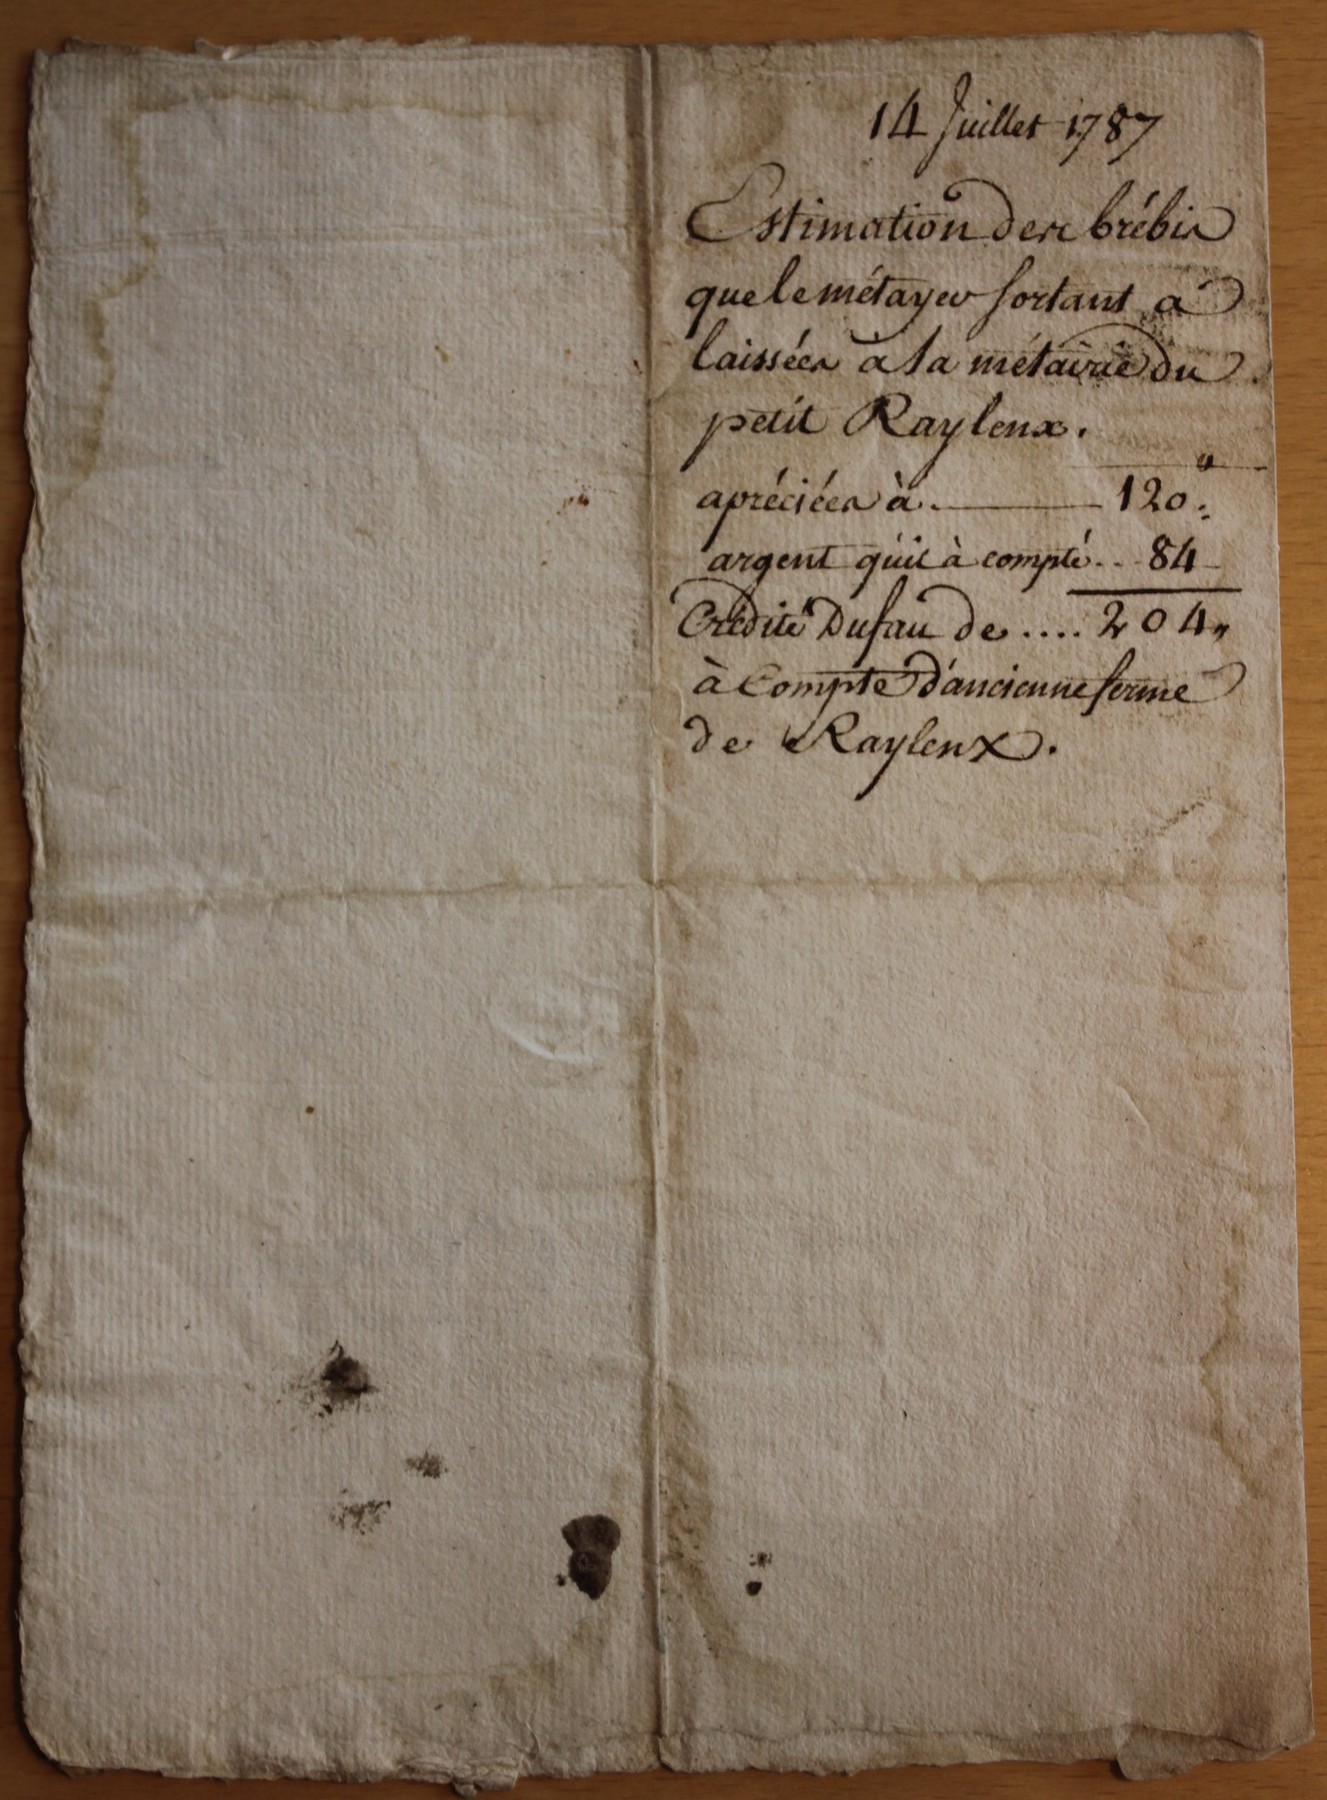 14 Juillet 1787
Estimation des brébis
que le métayer sortant a
laissées à la métairie du
petit Raylenx.
apréciées à. 120"
argent qu'il à compté... 84
Crédité Dufau de.... 204"
à Compte d'ancienne ferme
de Raylenx.